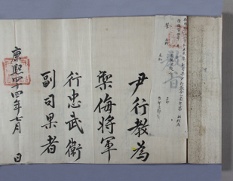 尹行教為
禦侮將軍
行忠武衛
副司果者
康熙四十四年七月 日